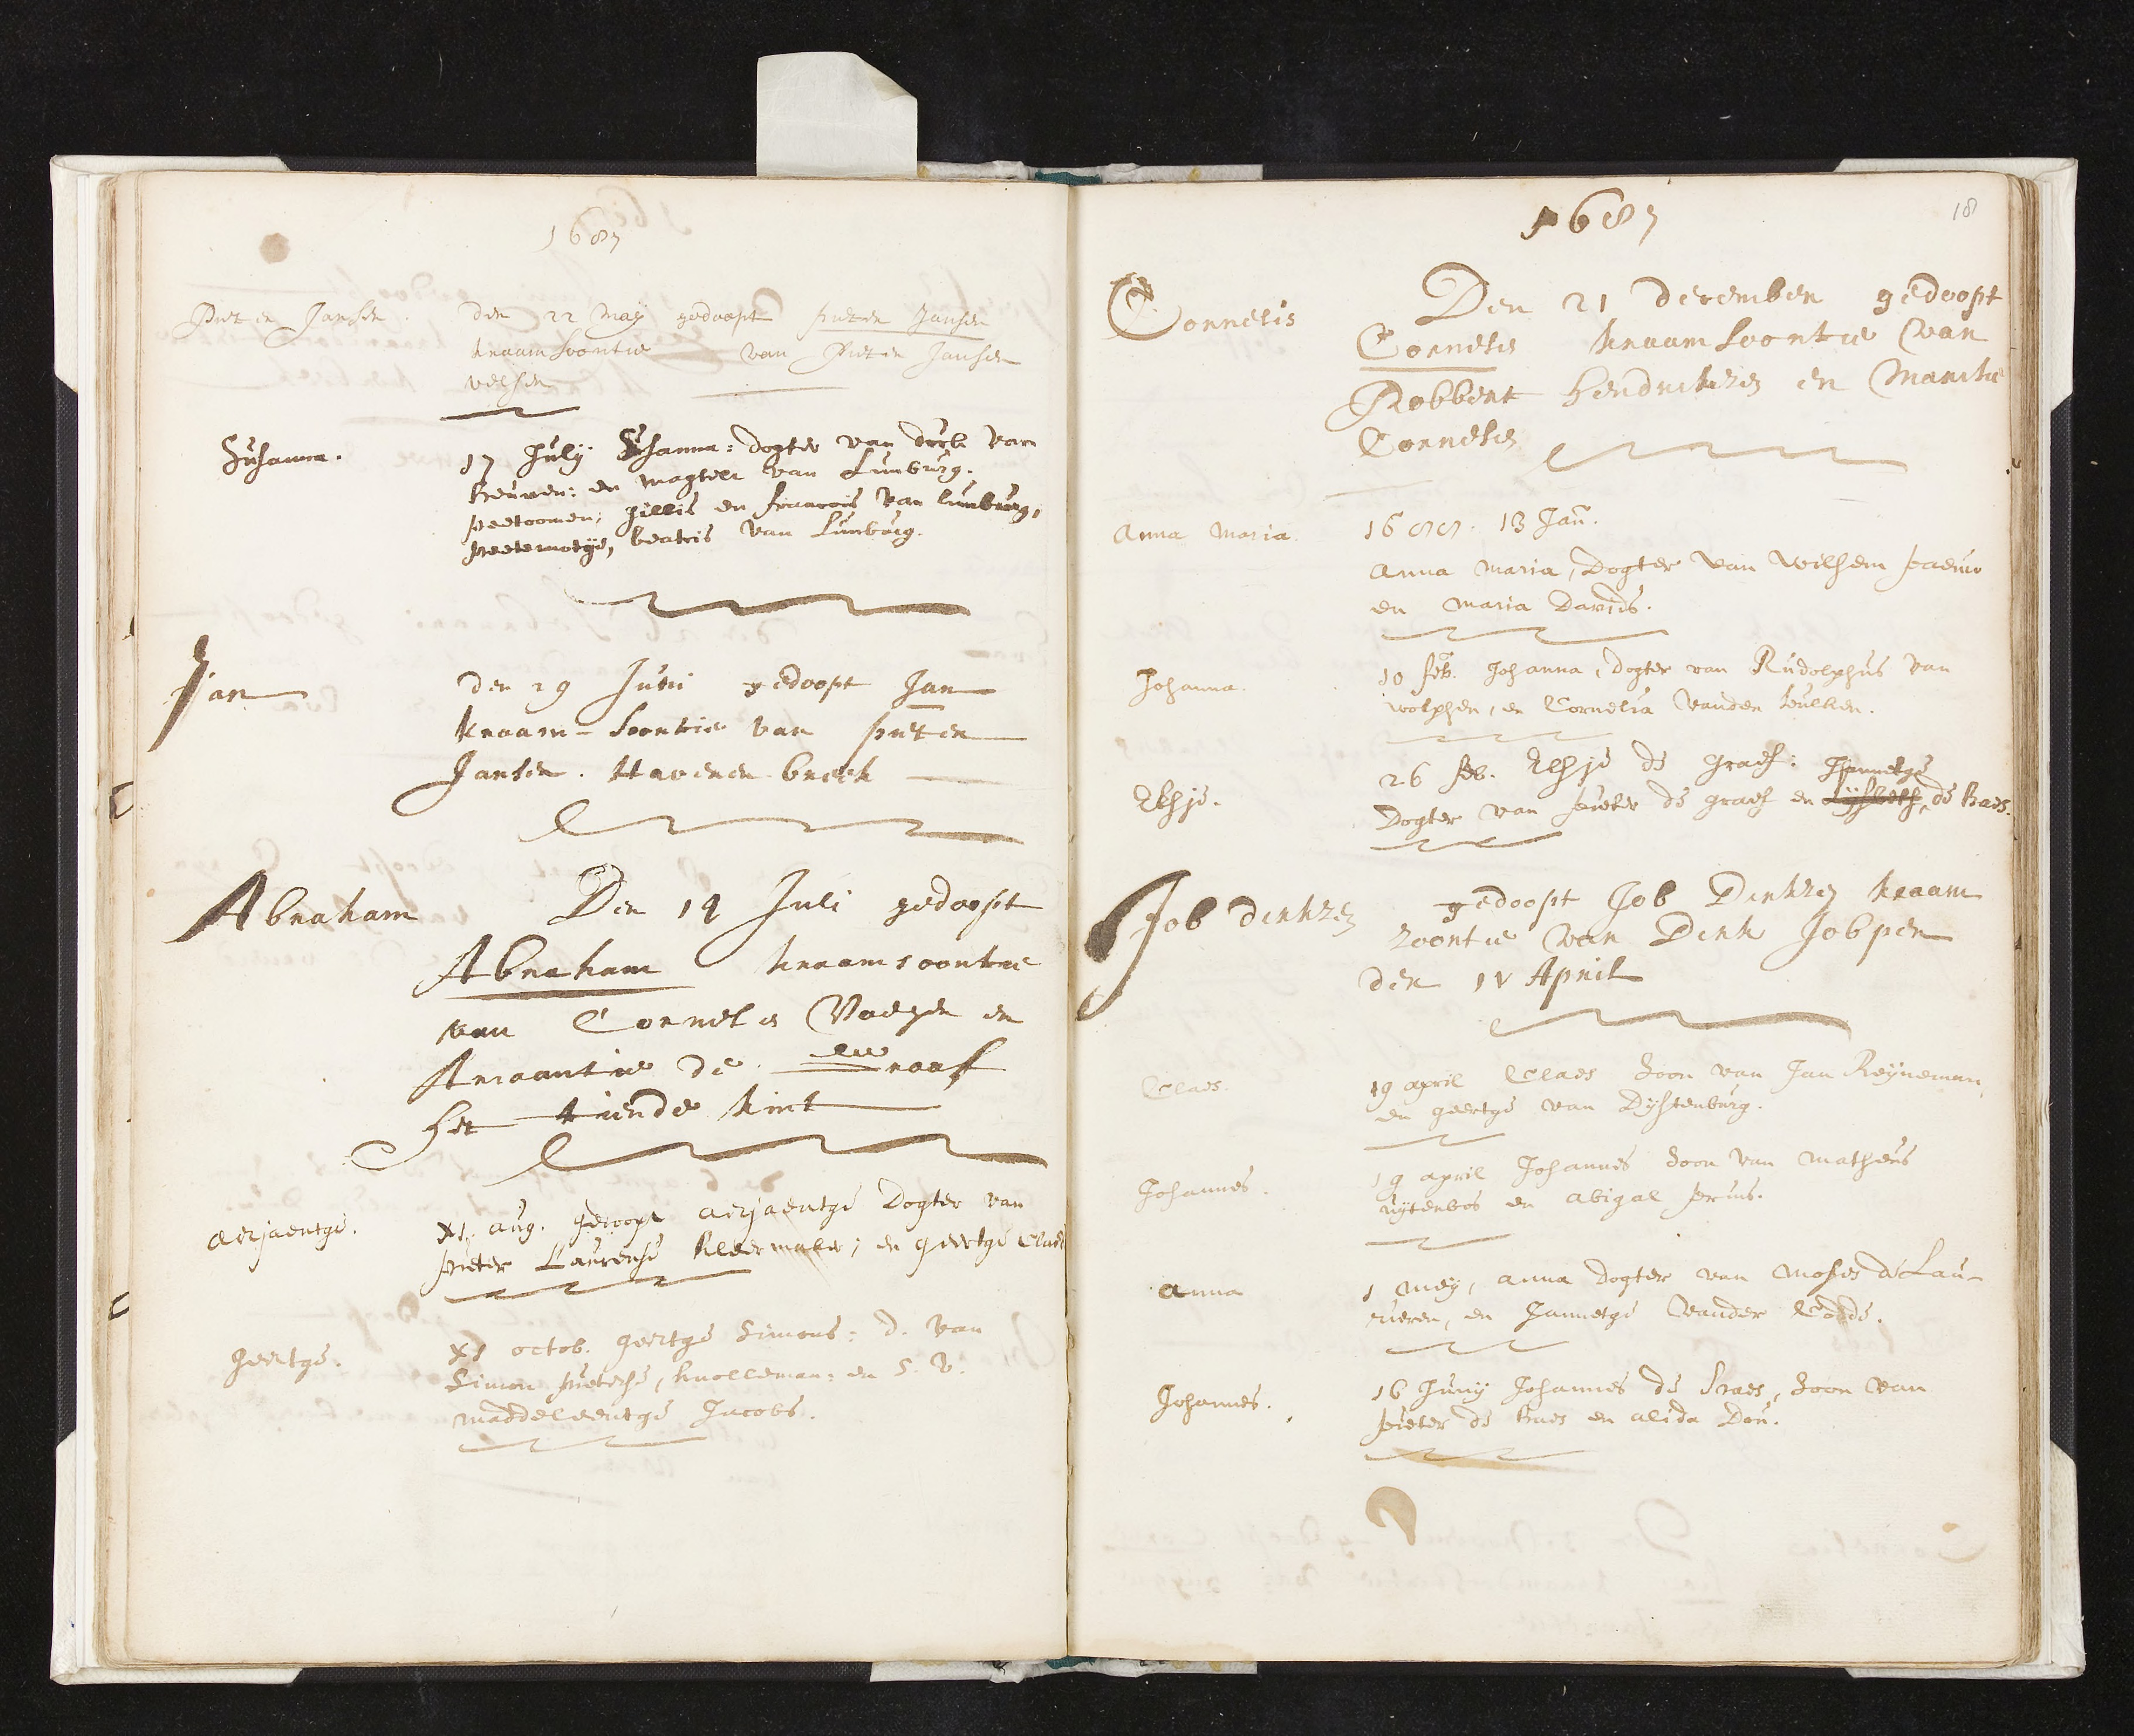 1687
Pieter Jansen. den 22 May gedoopt pieter Jansen
kraam soontie van Pieter Jansen
velsen
Susanna. 17 July Susanna: dogter van dirk van
Leuven: en magtelt van Limburg.
peetoomen; gillis en francois van limburg,
peetemotije, beatris van Limburg.
Jan den 29 Juni gedoopt Jan
kraam-soontie van pieter
Jansen. Haveren breek
Abraham Den 14 Juli gedoopt
Abraham kraamsoontie
van Cornelis en
Ariaantie de raaf
het tiende kint
aerjaentge. XI. aug. gedoopt aerjaentge Dogter van
pieter Laurense kleermaker; en geertge Claes
geertge. XI octob. geertge Simons: d. van
Simon pieterse, knolleman: en S. V.
maddeleentge Jacobs.
18
1687
Cornelis Den 21 december gedoopt
Cornelis kraamsoontie van
Robbert hendrickzen en Maritie
Cornelis
Anna Maria. 1688. 13 Jan.
Anna Maria, Dogter van Wilhem
en Maria Davids.
Johanna. 10 feb. Johanna, dogter van Rudolphus van
wolphen, en Cornelia vanden
Elsje. 26 feb. Elsje de graef: Jannetge
Dogter van pieter de graef en Lijsbeth, de Haes.
Job dirkzen gedoopt Job Dirkzen kraam
zoontie van Dirk Jobpen
den 11 April
Claes. 19 april Claes Zoon van Jan Reijneman,
en geertge van Dijstenburg.
Johannes. 19 april Johannes Zoon van Matheus
uijtenbos en abigal
anna 1 meij, anna dogter van Moses d'Lau-
rieren, en Jannetge vander Codde.
Johannes. 16 Junij Johannes de Haes, Zoon van
pieter de Haes en alida Dou.